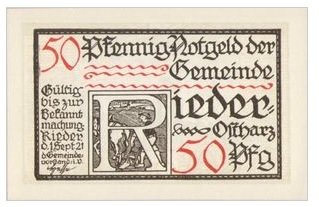 50 Pfennig Notgeld der
Gemeinde
Rieder-
Ostharz
50 Pfg
Gültig
bis zur
Bekannt
machung.
Rieder
d. 1. Sept. 21
d. Gemeinde-
vorstand i. V.